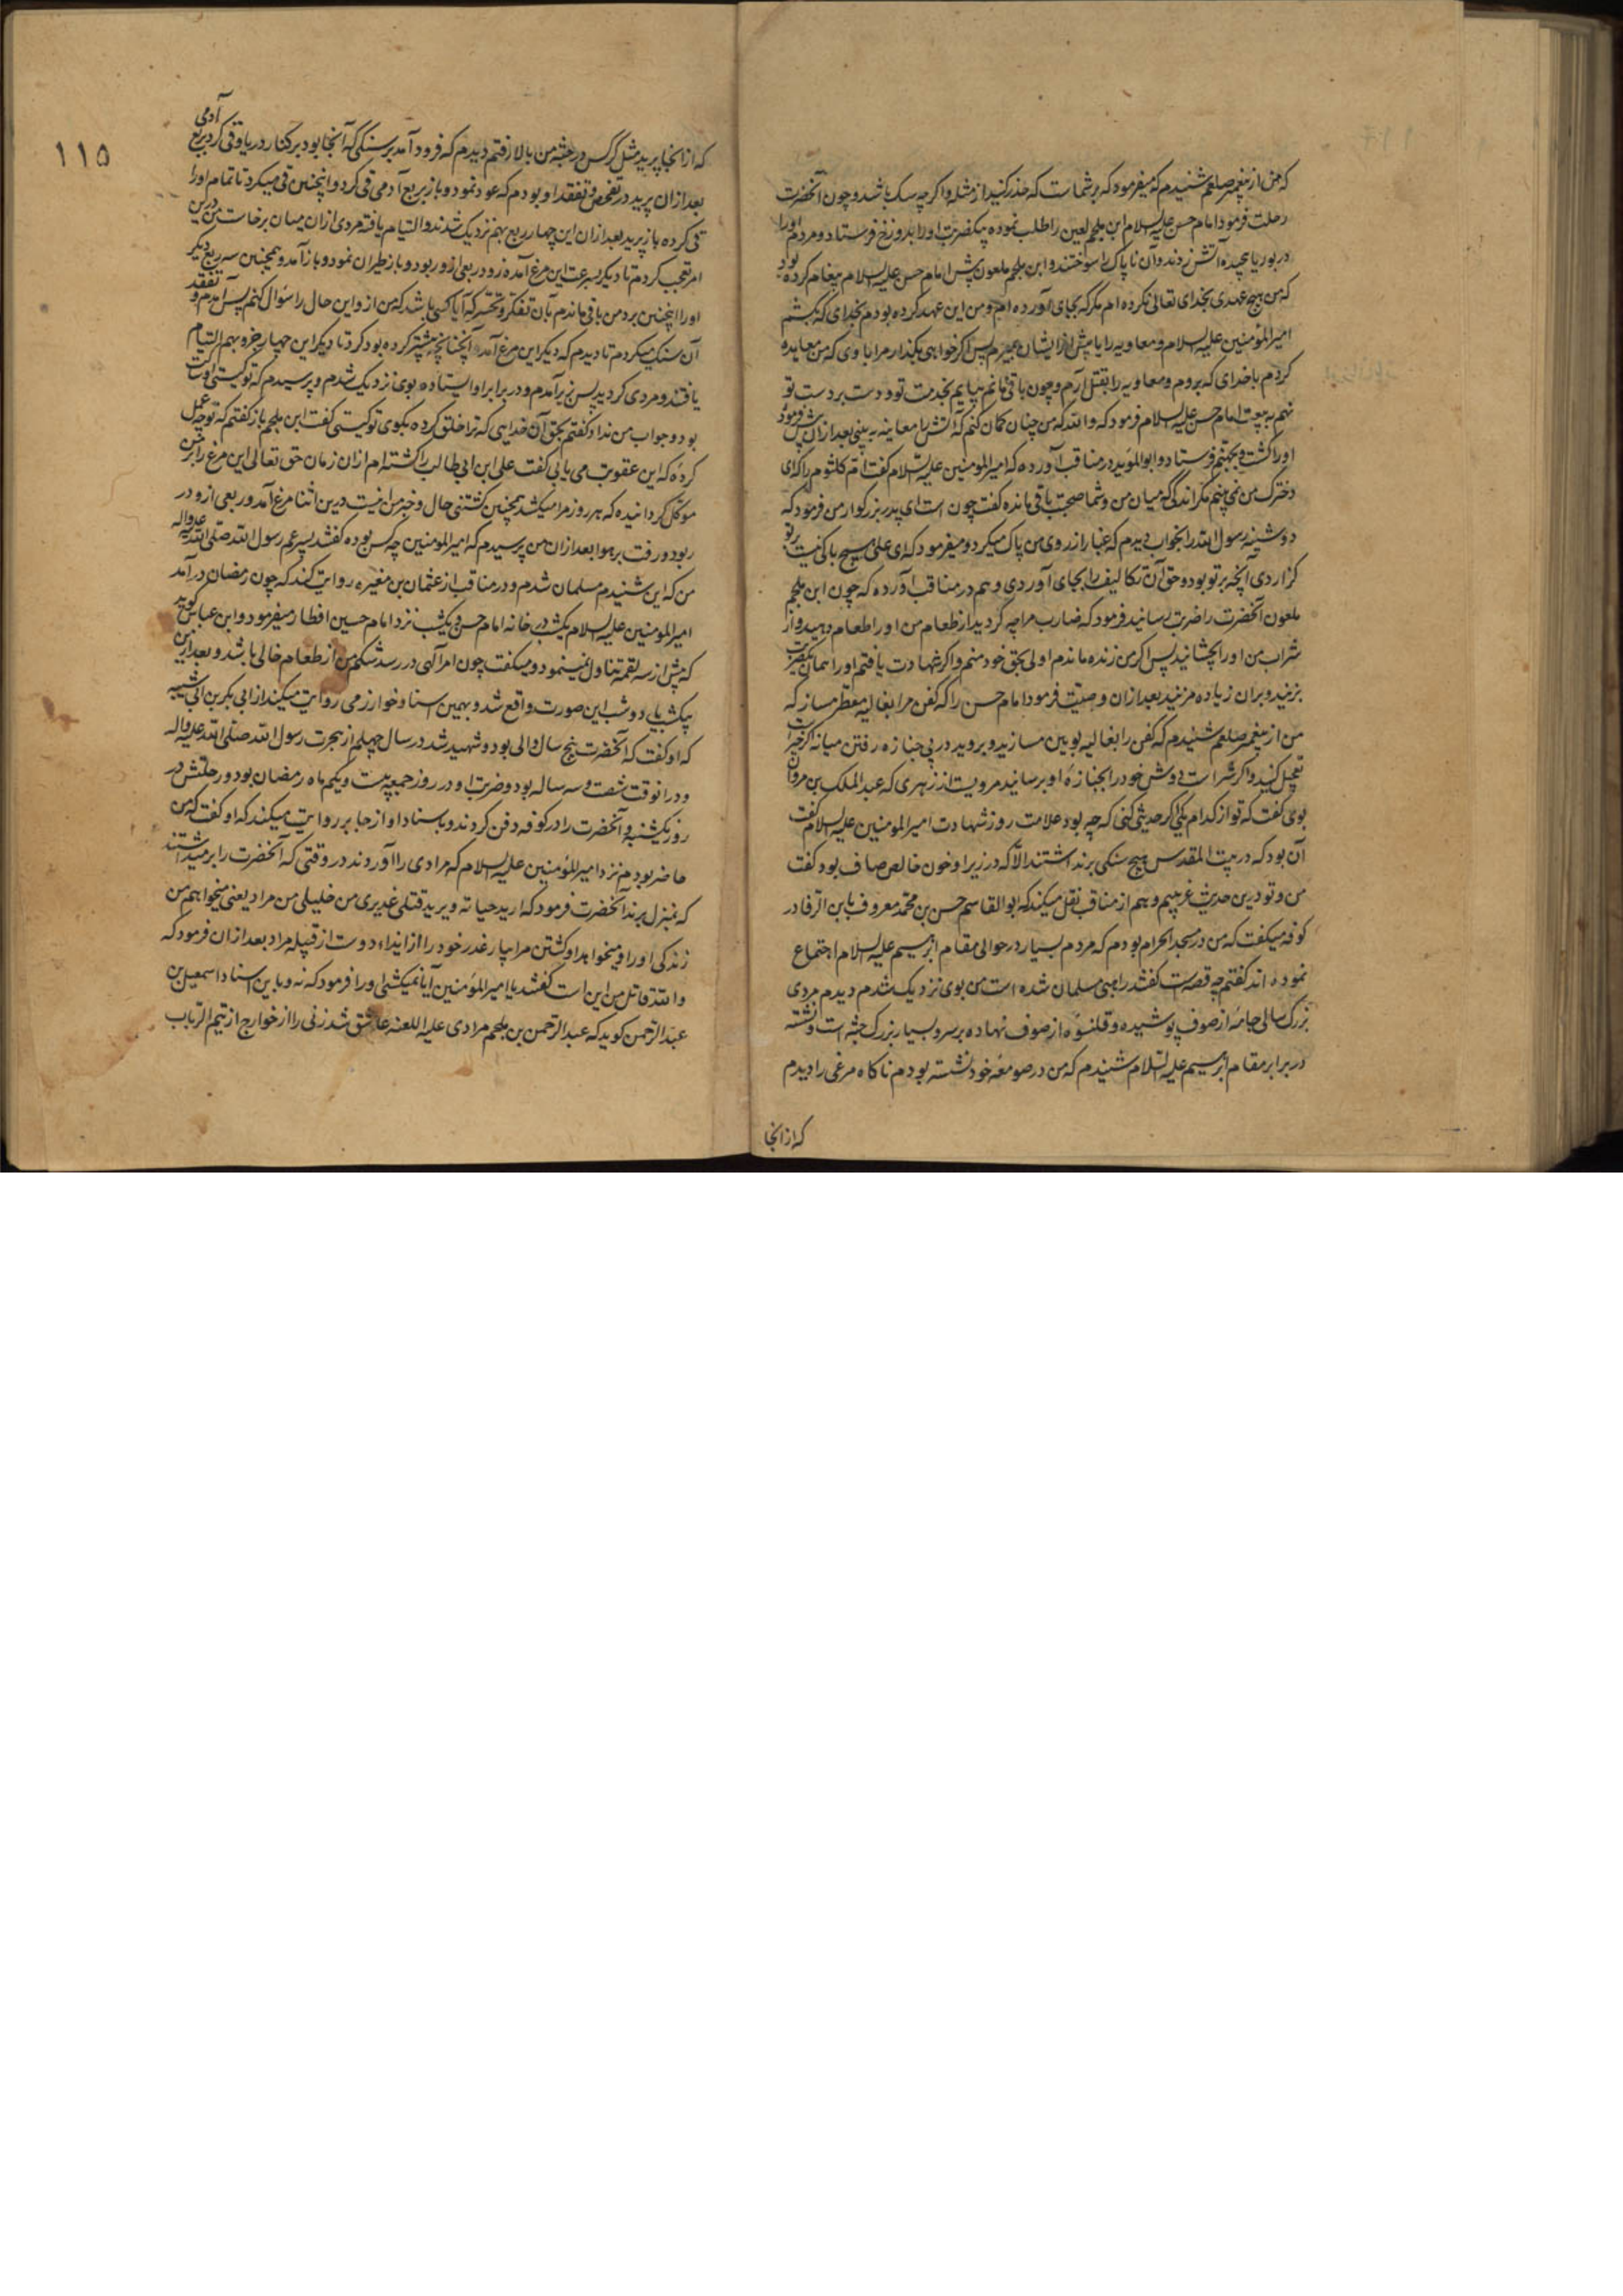 که من از پیغمبر صلعم شنیدم که میفرمود که بر شماست که حذر کنید از مثله و اگر چه سک باشد و چون آنحضرت
رحلت فرمود امام حسن علیه السلام ابن ملجم لعین را طلب نموده بیکضربت او را بدوزخ فرستاد و مردم او را
در بوریا پیچیده آتش زدند و آن ناپاک را سوختند و ابن ملجم ملعون پیش امام حسن علیه السلام پیغام کرده بود
که من هیچ عهدی بخدای تعالی نکرده ام مکر که بجای آورده ام و من این عهد کرده بودم بخدای که بکشم
امیر المؤمنین علیه السلام و معاویه را یا پیش از ایشان بمیرم پس اکر خواهی بکذار مرا با وی که من معاهده
کردم با خدای که بروم و معاویه را بقتل آرم و چون باقی مانم بیایم بخدمت تو و دست بر دست تو
نهم به بیعت امام حسن علیه السلام فرمود که والله که من چنان کمان کنم که آتش را معاینه به بینی بعد از آن پیش فرمود
او را کشت و بجهنم فرستاد و ابو المؤید در مناقب آورده که امیر المومنین علیه السلام کفت ام کلثوم را که ای
دخترک من نمی بینم مکر اندکی که میان من و شما صحبت باقی مانده کفت چون است ای پدر بزرکوار من فرمود که
دوشینه رسول الله را بخواب دیدم که غبار از روی من پاک میکرد و میفرمود که ای علی هیچ باکی نیست بر تو
کزاردی آنچه بر تو بود و حق آن تکالیف را بجای آوردی و هم در مناقب آورده که چون ابن ملجم
ملعون آنحضرت را ضربت رسانید فرمود که ضارب مرا چه کردید از طعام من او را طعام دهید و از
شراب من او را بچشانید پس اکر من زنده ماندم اولی بحق خود منم و اکر شهادت یافتم او را همان یکضربت
بزنید و بران زیاده مزنید بعد ازان وصیت فرمود امام حسن را که کفن مرا بغالیه معطر مساز که
من از پیغمبر صلعم شنیدم که کفن را بغالیه بویین مسازید و بروید در پی جنازه رفتن میانه اکر خیر است
تعجیل کنید و اکر شر است دوش خود را بجنازهٔ او برسانید مرویست از زهری که عبد الملک بن مروان
بوی کفت که تو از کدام یکی اکر حدیثی کنی که چه بود علامت روز شهادت امیر المومنین علیه السلام کفت
آن بود که در بیت المقدس هیچ سنکی برنداشتند الا که در زیر او خون خالص صاف بود کفت
من و تو درین حدیث غریبیم و هم از مناقب نقل میکند که ابو القاسم حسن بن محمد معروف بابن الرفا در
کوفه میکفت که من در مسجد الحرام بودم که مردم بسیار در حوالی مقام ابرهیم علیه السلام اجتماع
نموده اند کفتم چه قصه است کفتند راهبی مسلمان شده است من بوی نزدیک شدم دیدم مردی
بزرک سالی جامهٔ از صوف پوشیده و قلنسوهٔ از صوف نهاده بر سر و بسیار بزرک جثه است و نشسته
در برابر مقام ابرهیم علیه السلام شنیدم که من در صومعهٔ خود نشسته بودم ناکاه مرغی را دیدم
که از انجا
۱۱۵
که از انجا پرید مثل کرکس در جثه من بالا رفتم دیدم که فرود آمد بر سنکی که آنجا بود بر کنار دریا و قی کرد بربع آدمی
بعد ازان پرید در تفحص و تفقد او بودم که عود نمود و باز بربع آدمی قی کرد و اینچنین قی میکرد تا تمام او را
قی کرده باز پرید بعد ازان این چهار ربع بهم نزدیک شدند و التیام یافته مردی ازان میان برخاست من درین
امر تعجب کردم تا دیکر بسرعت این مرغ آمده زود ربعی از و ربود و باز طیران نمود و باز آمد و همچنین سه ربع دیکر
او را اینچنین برد من باقی ماندم بآن تفکر و تحسر که آیا کسی باشد که من از و این حال را سؤال کنم پس آمدم و تفقد
آن سنک میکردم تا دیدم که دیکر این مرغ آمد آنچنانچه بیشتر کرده بود کرد تا دیکر این چهار جزو بهم التیام
یافتند و مردی کردید پس بزیر آمدم و در برابر او ایستاده بوی نزدیک شدم و پرسیدم که تو کیستی او ساکت
بود و جواب من نداد کفتم بحق آن خدایی که ترا خلق کرده بکوی تو کیستی کفت ابن ملجم باز کفتم که تو چه عمل
کردهٔ که این عقوبت می یابی کفت علی ابن ابی طالب را کشته ام ازان زمان حق تعالی این مرغ را بر من
موکل کردانیده که هر روز مرا میکشد بهمچنین کشتنی حال و خبر من اینست درین اثنا مرغ آمد و ربعی از و در
ربود و رفت بر هوا بعد ازان من پرسیدم که امیر المومنین چه کس بوده کفتند پسر عم رسول الله صلی الله علیه واله
من که این شنیدم مسلمان شدم و در مناقب از عثمان بن مغیره روایت کند که چون رمضان در آمد
امیر المومنین علیه السلام یکشب در خانه امام حسن و یکشب نزد امام حسین افطار میفرمود و ابن عباس کوید
که پیش از سه لقمه تناول نمینمود و میکفت چون امر الهی در رسد شکم من از طعام خالی باشد و بعد ازین
بیکشب یا بدو شب این صورت واقع شد و بهمین اسناد خوارزمی روایت میکند از ابی بکر بن ابی شیبه
که او کفت که آنحضرت پنج سال والی بود و شهید شد در سال چهلم از هجرت رسول الله صلی الله علیه واله
و در انوقت شصت و سه ساله بود و ضربت او در روز جمعه بیست و یکم ماه رمضان بود و رحلتش در
روز یکشنبه و آنحضرت را در کوفه دفن کردند و باسناد او از جابر روایت میکند که او کفت که من
حاضر بودم نزد امیر المؤمنین علیه السلام که مرادی را آوردند در وقتی که آنحضرت را برمیداشتند
که بمنزل برند آنحضرت فرمود که ارید حیاته و یرید قتلی غدیری من خلیلی من مراد یعنی میخواهم من
زندکی او را و میخواهد او کشتن مرا بیار غدر خود را از ایذاء دوست از قبیله مراد بعد ازان فرمود که
والله قاتل من این است کفتند یا امیر المؤمنین آیا نمیکشی او را فرمود که نه و باین اسناد اسمعیل بن
عبد الرحمن کوید که عبد الرحمن بن ملجم مرادی علیه اللعنه عاشق شد زنی را از خوارج از تیم الرباب